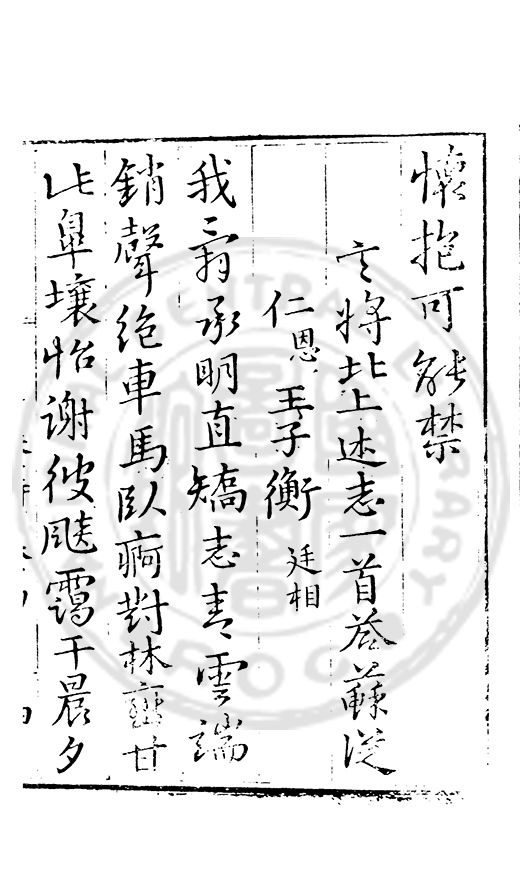 懷抱可能禁
言將北上述志一首荅蘇從
仁恩王子衡廷相
我
承明直矯志青雲端
銷聲絶車馬臥痾對林巒甘
此皐壤怡謝彼飈靄干晨夕